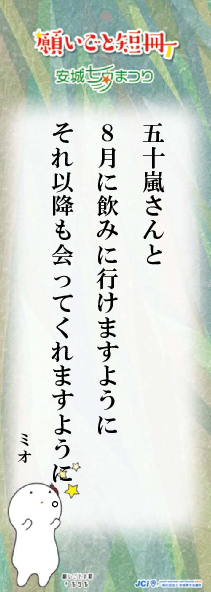 願いごと短冊
安城七夕まつり
五十嵐さんと
８月に飲みに行けますように
それ以降も会ってくれますように
ミオ
JCI